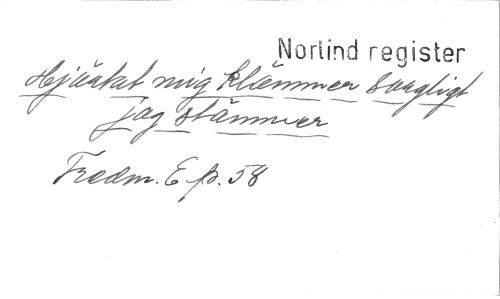 Norlind register
Hjärtat mig klämmer sorgligt
jag stämmer
Fredm. Ep. 58